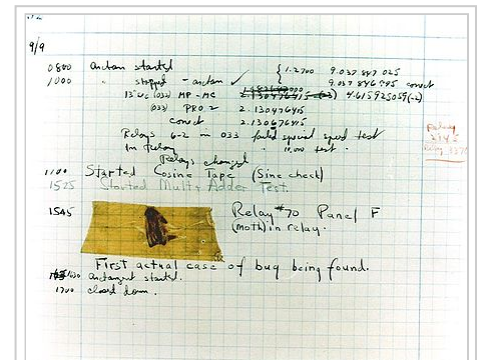 9/9
0800 Antan started
1000 " stopped - antan ✓
{ 1.2700 9.037 847 025
9.037 846 995 correct
13"uc (032) MP - MC 2.130476415 (-3) 4.615925059(-2)
(033) PRO 2 2.130476415
correct 2.130676415
Relays 6-2 in 033 failed special speed test
in Relay 10.000 test.
Relay
2145
Relay 3370
Relays changed
1100 Started Cosine Tape (Sine check)
1525 Started Mult + Adder Test.
1545 Relay #70 Panel F
(moth) in relay.
First actual case of bug being found.
1630 Antangent started.
1700 closed down.